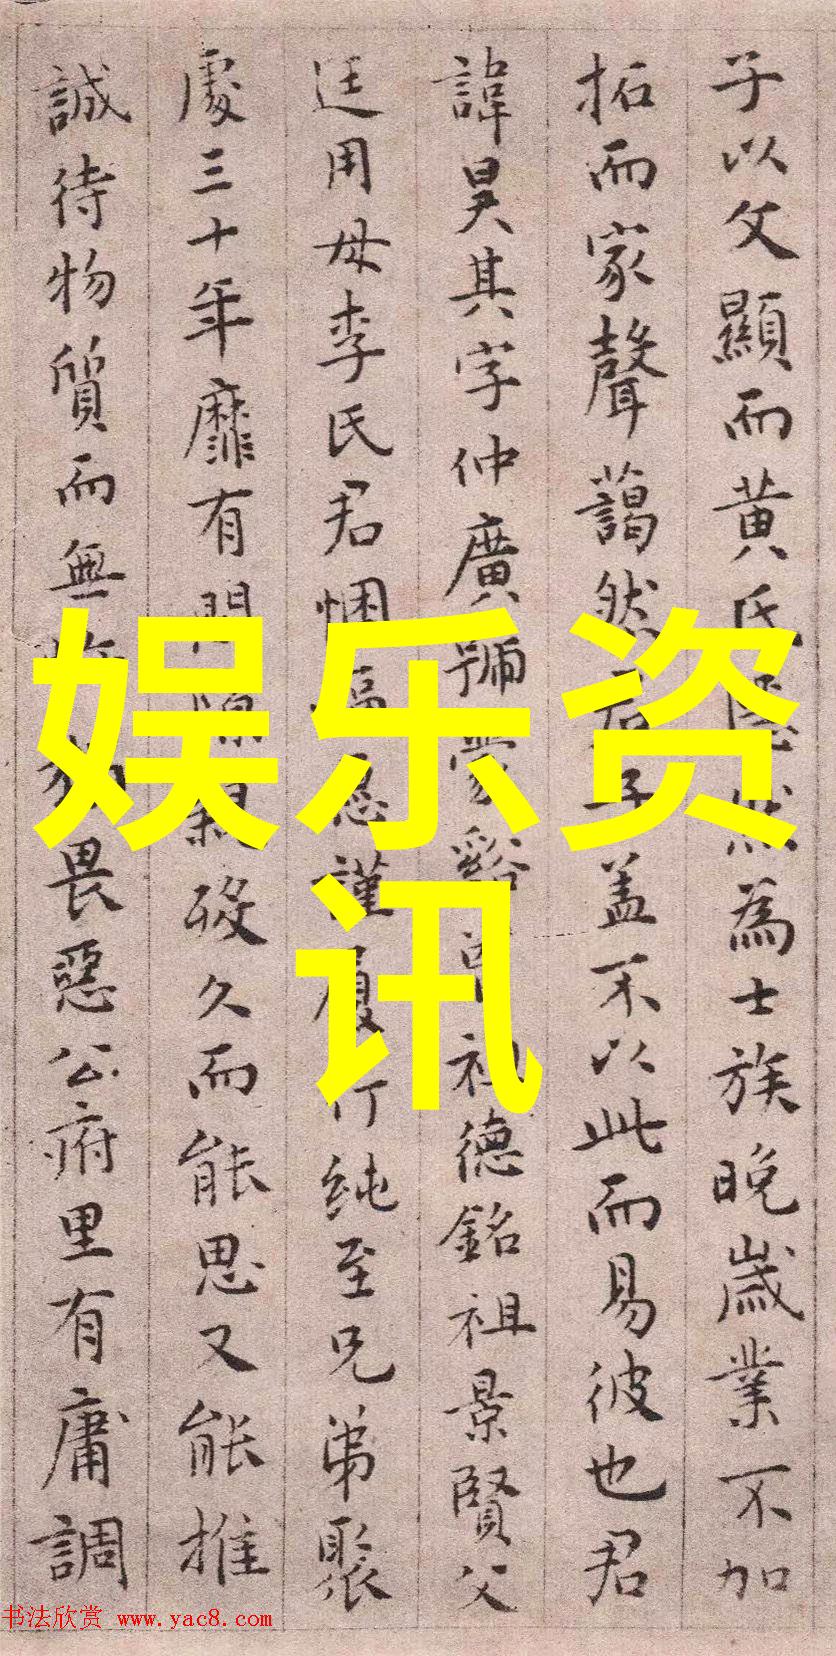 子以父顯而黄氏為士族晚歲業不加
拓而家聲藹然盖不以此而易彼也君
諱昊其字仲廣號蒙谿祖德銘祖景賢父
廷用母李氏君悃愊謹履行純至兄弟聚
處三十年靡有間隙親歿久而能思又能推
誠待物質而無畏惡公府里有庸調
娱乐资
讯
书法欣赏 www.yac8.com